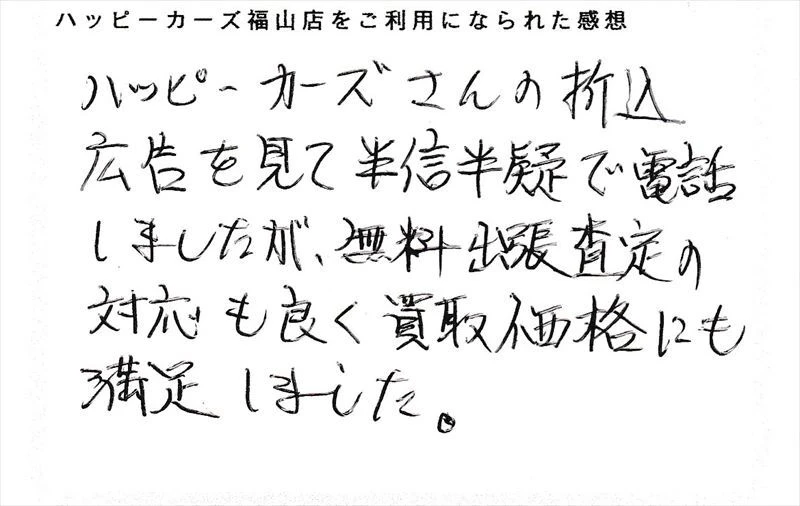 ハッピーカーズ福山店をご利用になられた感想
ハッピーカーズさんの折込
広告を見て半信半疑で電話
しましたが、無料出張査定の
対応も良く買取価格にも
満足しました。